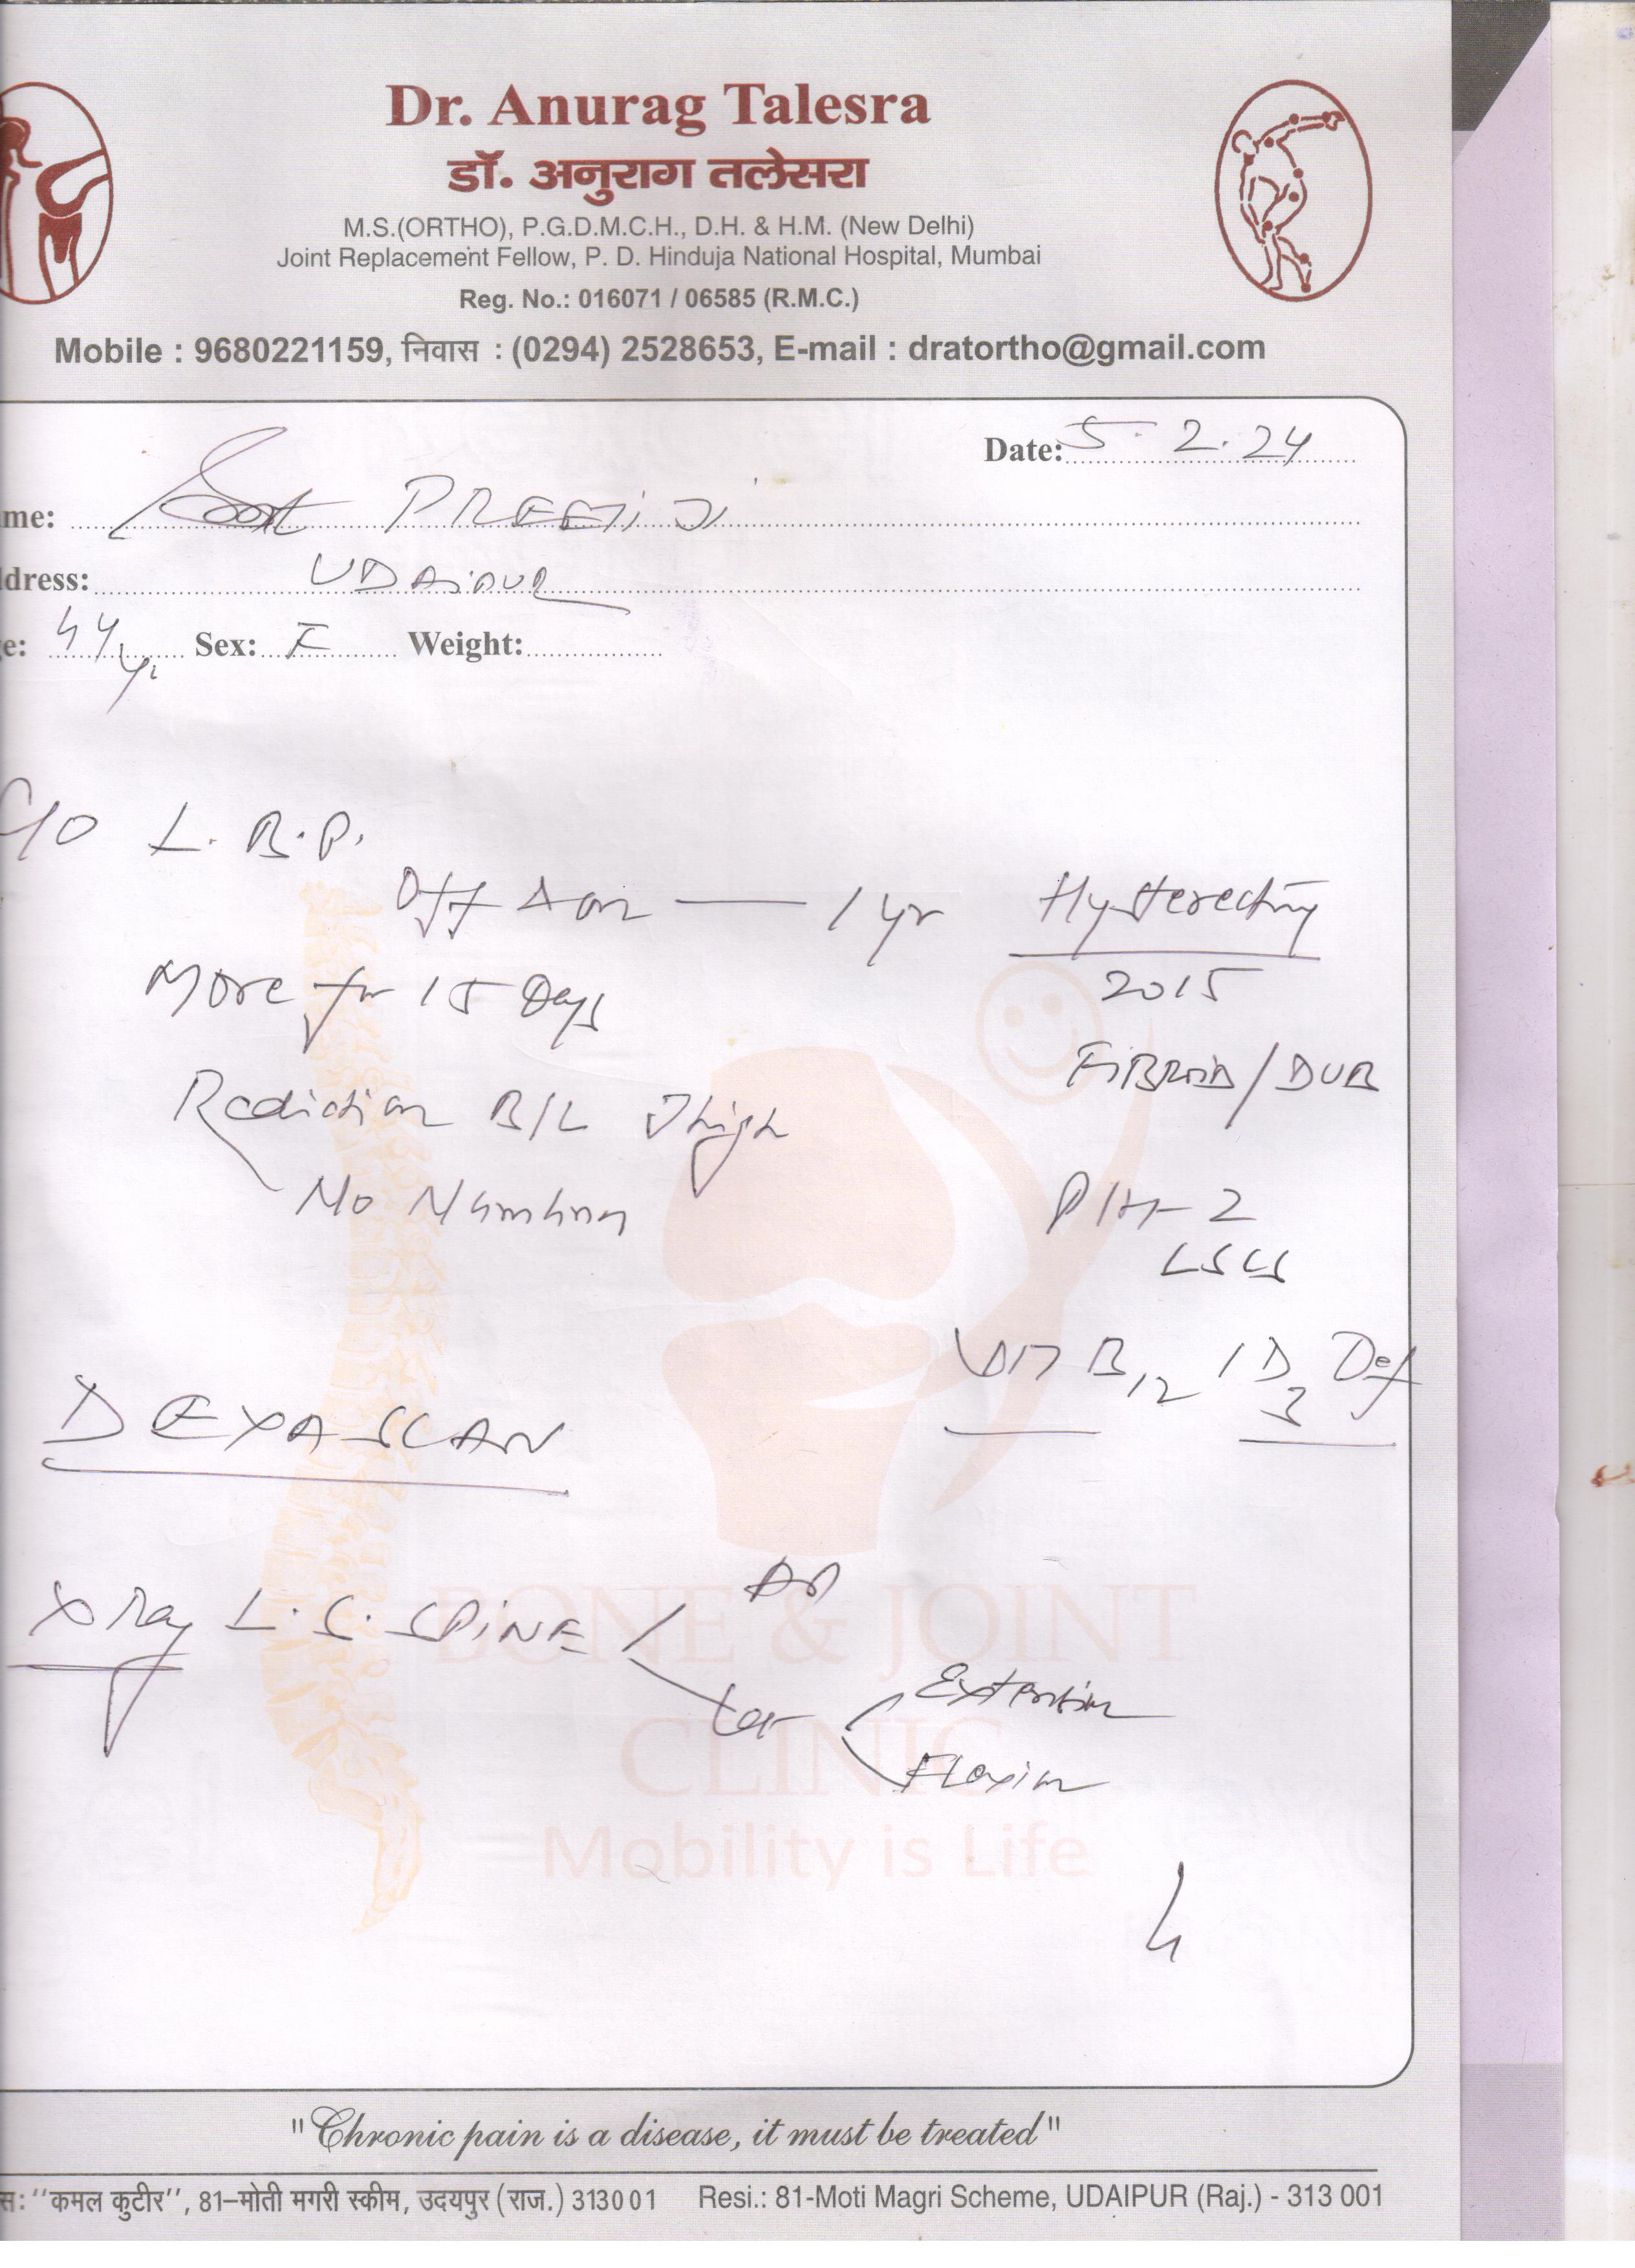 Dr. Anurag Talesra
डॉ. अनुराग तलेसरा
M.S.(ORTHO), P.G.D.M.C.H., D.H. & H.M. (New Delhi)
Joint Replacement Fellow, P. D. Hinduja National Hospital, Mumbai
Reg. No.: 016071 / 06585 (R.M.C.)
Mobile : 9680221159, निवास : (0294) 2528653, E-mail : dratortho@gmail.com
Date: 5.2.24
me: PREETI JI
ddress: UDAIPUR
e: 44 yr Sex: F Weight:
C/O L.B.P.
Off & on — 1 yr
More for 15 Days
Radiation B/L Thigh
No Numbness
Hysterectomy
2015
FIBROID / DUB
P/H - 2
LSCS
VIT B12 / D3 Def
DEXA SCAN
X Ray L.S. SPINE / AP
Lat < Extension
Flexion
BONE & JOINT
CLINIC
Mobility is Life
"Chronic pain is a disease, it must be treated"
स: ''कमल कुटीर'', 81–मोती मगरी स्कीम, उदयपुर (राज.) 313001 Resi.: 81-Moti Magri Scheme, UDAIPUR (Raj.) - 313 001